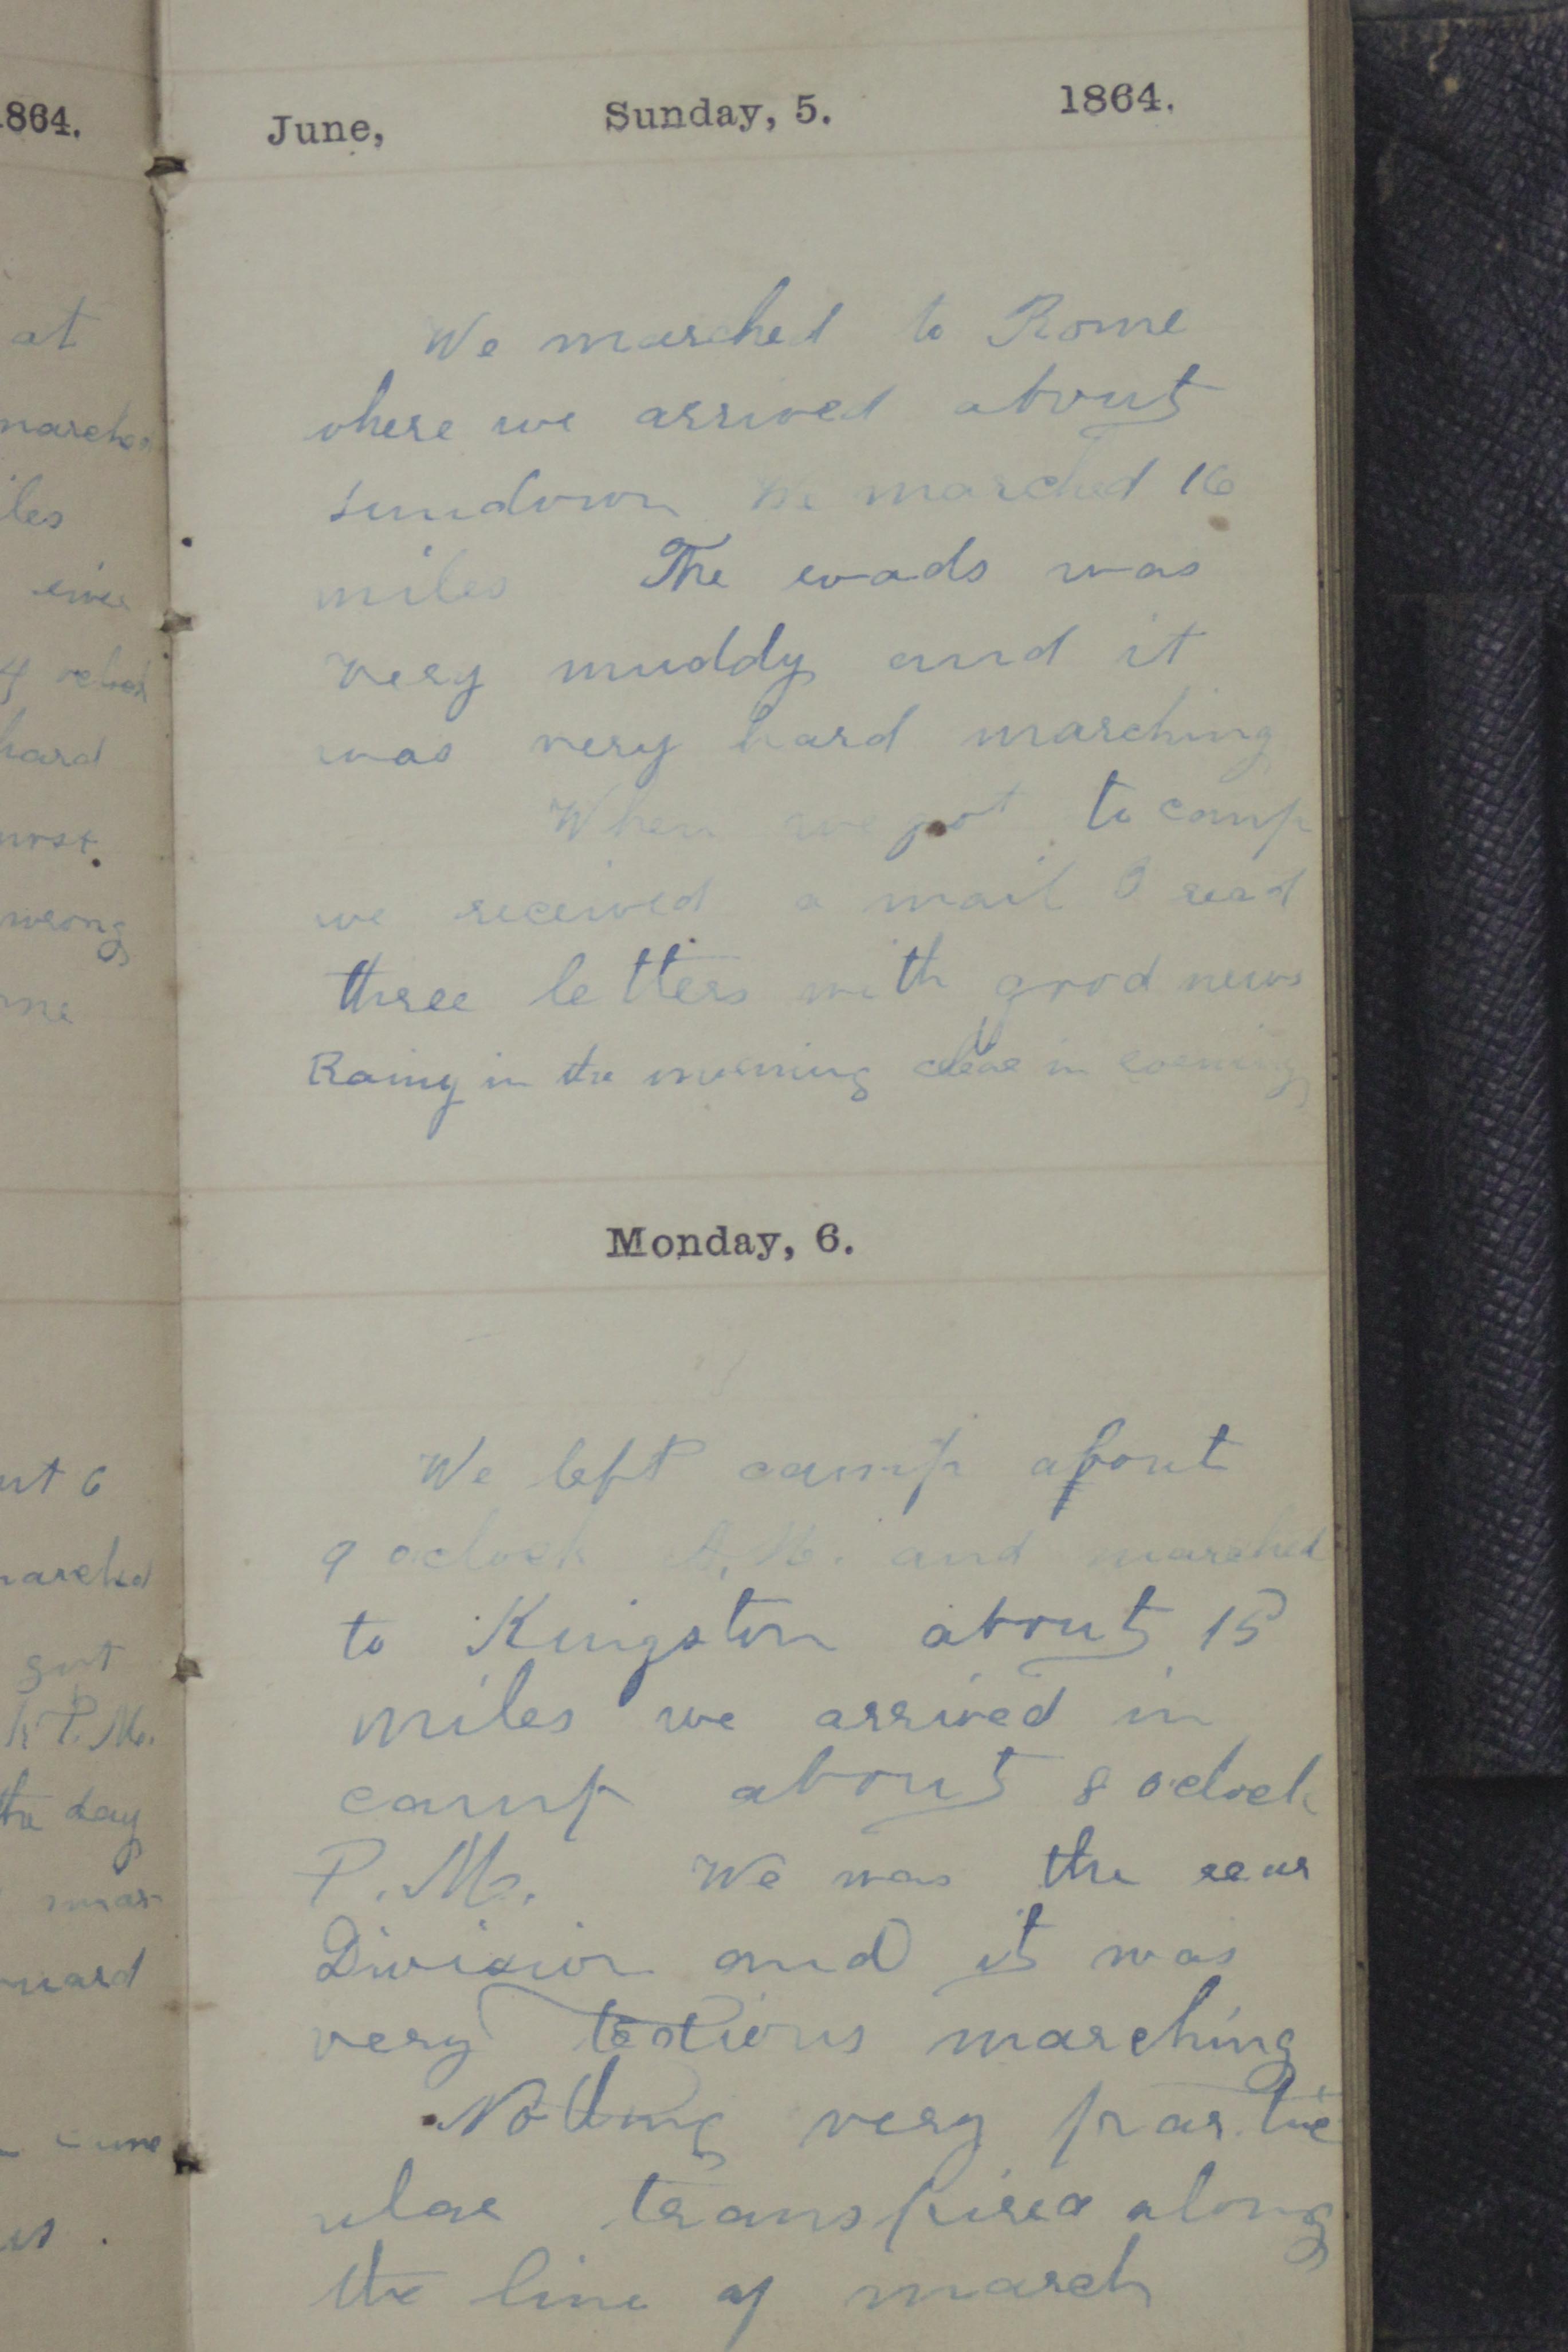 1864.
at
marched
iles
hard
wrong
me
ut 6
marched
got
P.M.
the day
was
June, Sunday, 5. 1864.
We marched to Rome
where we arrived about
sundown We marched 16
miles The roads was
very muddy and it
was very hard marching
When we got to camp
we received a mail I read
three letters with good news
Rainy in the morning clear in evening
Monday, 6.
We left camp about
9 oclock A.M. and marched
to Kingston about 15
miles we arrived in
camp about 8 oclock
P.M. We was the rear
Division and it was
very tedious marching
Nothing very partic
ular transpired along
the line of march